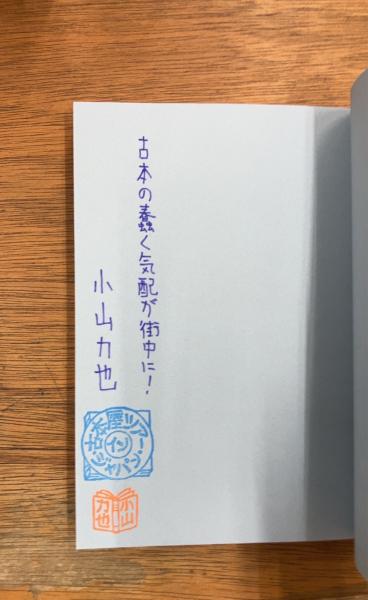 古本の蠢く気配が街中に!
小山力也
古本屋ツアー
イン
ジャパン
小山
力也